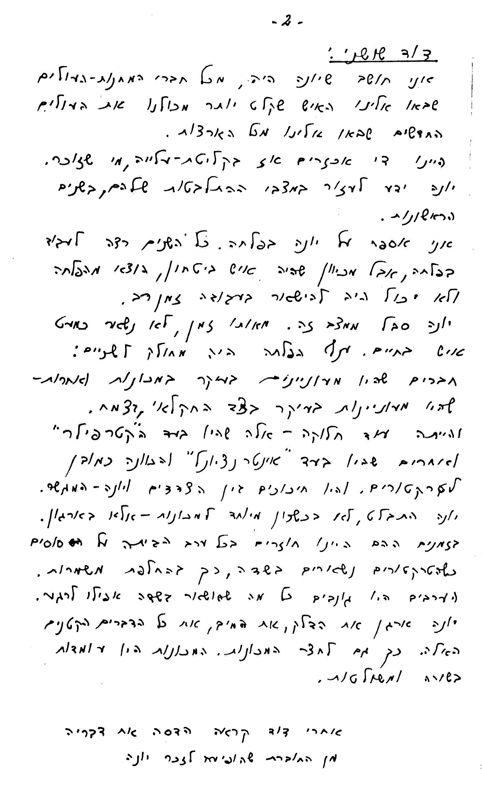 -2-
דוד שושני:
אני חושב שיונה היה, מכל חברי המחנות-העולים
שבאו אלינו האיש שקלט יותר מכולנו את העולים
החדשים שבאו אלינו מכל הארצות.
היינו די אכזרים אז בקליטת-עלייה, מי שזוכר.
יונה ידע לעזור במצבי ההתלבטות שלהם, בשנים
הראשונות.
אני אספר על יונה בפלחה. כל השנים רצה לעבוד
בפלחה, אבל מכיוון שהיה איש ביטחון, הוצא מהפלחה
ולא יכול היה להישאר בעבודה זמן רב.
יונה סבל ממצב זה. מאותו זמן, לא נשאר כמעט
איש בחיים. ענף הפלחה היה מחולק לשניים:
חברים שהיו מעוניינים בעיקר במכונות ואחרות-
שהיו מעוניינות בעיקר בצד החקלאי, בצמח.
והייתה עוד חלוקה - אלה שהיו בעד ה"קטרפילר"
ואחרים שהיו בעד "אינטרנציונל" והכוונה כמובן
לטרקטורים. והיו חיכוכים בין הצדדים ויונה-המגשר.
יונה התבלט, לא בכשרון מיוחד למכונות - אלא בארגון.
בזמנים ההם היינו חוזרים בכל ערב הביתה על הסוסים
כשהטרקטורים נשארים בשדה, כך בהחלפת משמרות.
הערבים היו גונבים כל מה שהושאר בשדה אפילו לרגע.
יונה ארגן את הדלק, את המים, את כל הדברים הקטנים
האלה. כך גם לחצר המכונות. המכונות היו עומדות
בשורה ומשולטות.
אחרי דוד קראה הדסה את דבריה
מן החוברת שהופיעה לזכר יונה